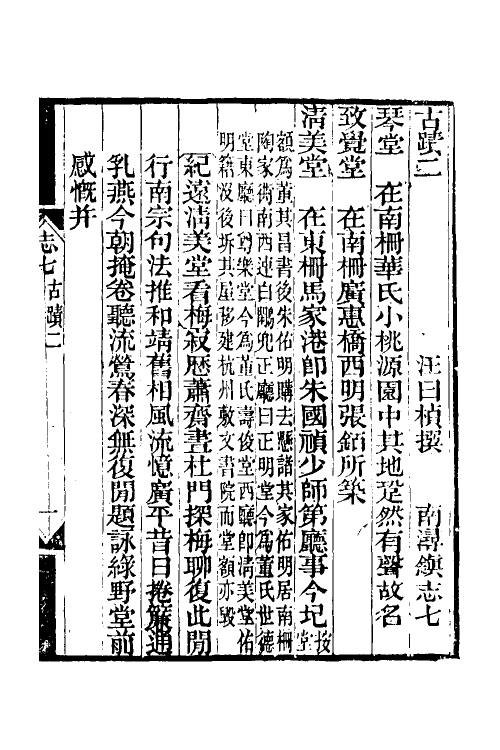 古蹟二　汪曰楨撰　南潯鎮志七
琴堂　在南柵華氏小桃源園中其地跫然有聲故名
致覺堂　在南柵廣惠橋西明張銆所築
清美堂　在東柵馬家港卽朱國禎少師第廳事今圮按堂
額爲董其昌書後朱佑明購去懸諸其家佑明居南柵
陶家衖南西連白鷴兜正廳曰正明堂今爲董氏世德
堂東廳曰尊樂堂今爲董氏壽俊堂西廳卽清美堂佑
明籍沒後拆其屋移建杭州敷文書院而堂額亦毀
紀遠清美堂看梅寂歷蕭齋晝杜門探梅聊復此閒
行南宗句法推和靖舊相風流憶廣平昔日捲簾通
乳燕今朝掩卷聽流鶯春深無復閒題詠綠野堂前
感慨并
志七　古蹟二　一